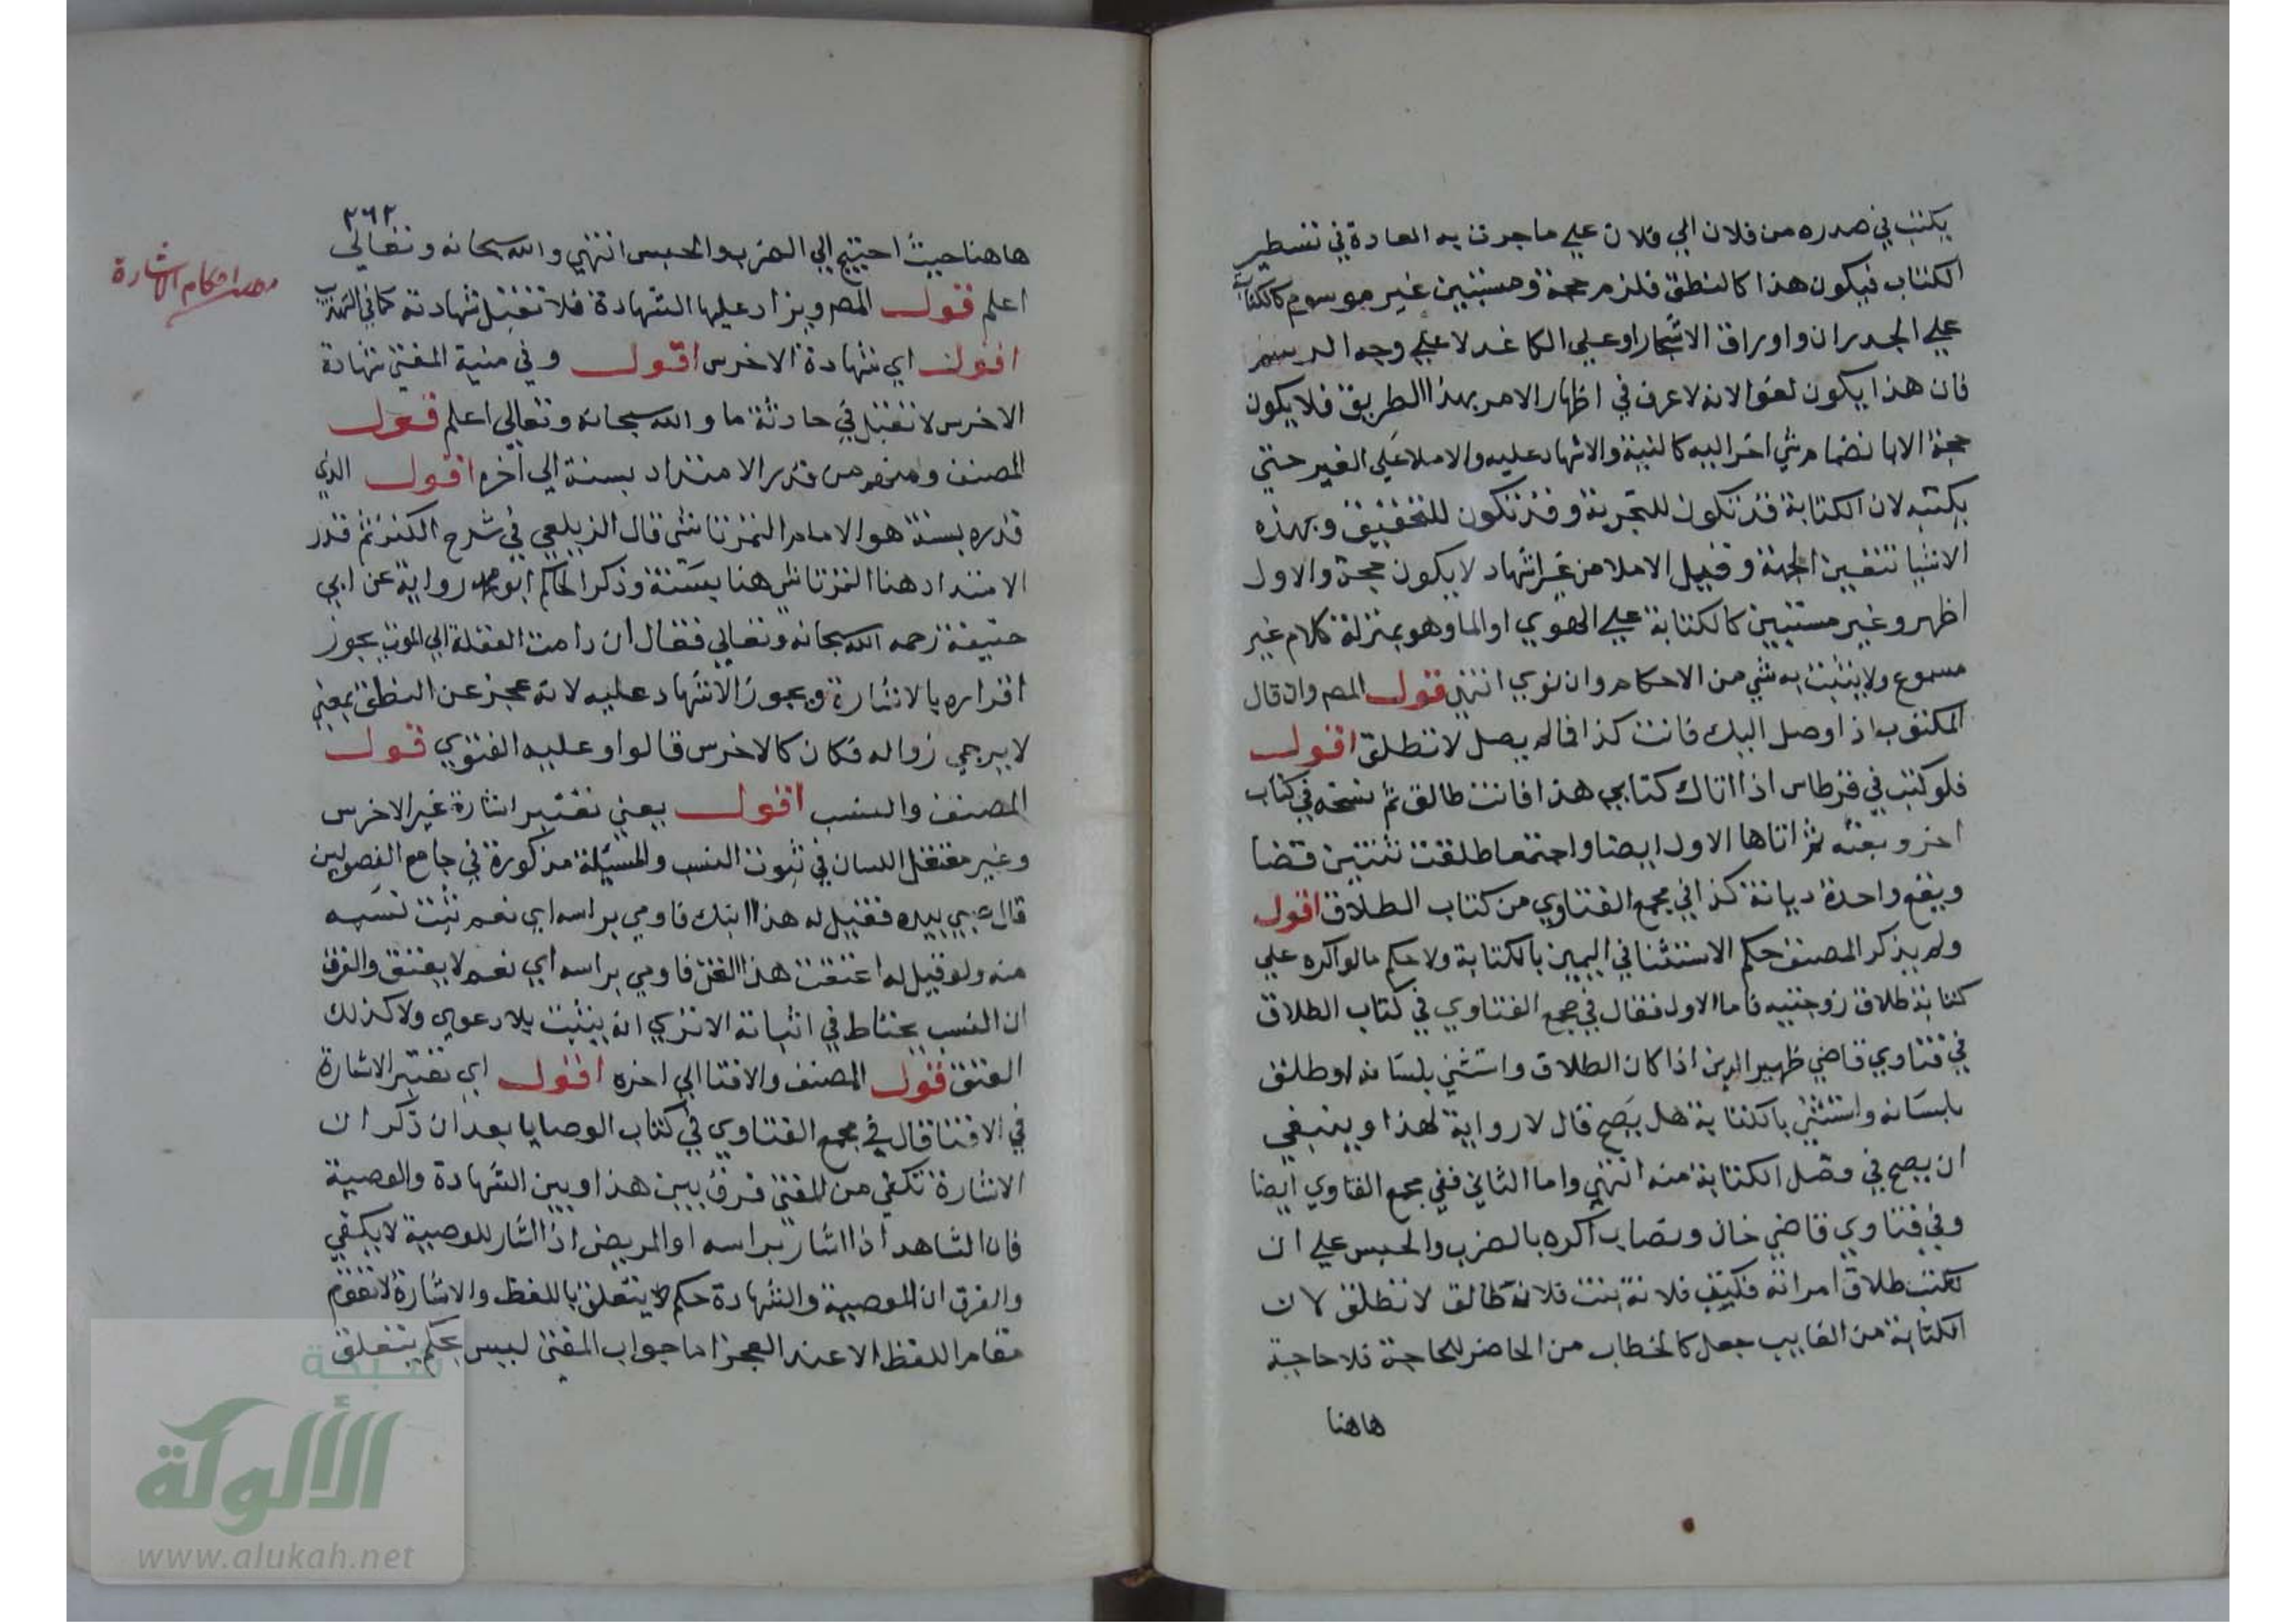 يكتب في صدره من فلان الي فلان علي ما جرت به العادة في تسطير
الكتاب فيكون هذا كالنطق فلزم حجة ومستبين غير موسوم كالكتابة
علي الجدران واوراق الاشجار او علي الكاغد لا علي وجه الرسم
فان هذا يكون لغوا لانه لا عرف في اظهار الامر بهذا الطريق فلا يكون
حجة الا بانضمام شي اخر اليه كالنية والاشهاد عليه والاملا علي الغير حتي
يكتبه لان الكتابة قد تكون للتجربة وقد تكون للتحقيق وبهذه
الاشيا تتعين الجهة وقيل الاملا من غير اشهاد لا يكون حجة والاول
اظهر وغير مستبين كالكتابة علي الهوي او الما وهو بمنزلة كلام غير
مسموع ولا يثبت به شي من الاحكام وان نوي انتهي قول المص وان قال
المكتوب اذا وصل اليك فانت كذا فما لم يصل لا تطلق اقول
فلو كتب في قرطاس اذا اتاك كتابي هذا فانت طالق ثم نسخه في كتاب
اخر وبعثه ثم اتاها الاول ايضا واجتمعا طلقت ثنتين قضا
ويقع واحدة ديانة كذا في مجمع الفتاوي من كتاب الطلاق اقول
ولم يذكر المصنف حكم الاستثنا في اليمين بالكتابة ولا حكم ما لو اكره علي
كتابة طلاق زوجتيه فاما الاول فقال في مجمع الفتاوي في كتاب الطلاق
في فتاوي قاضي ظهير الدين اذا كان الطلاق واستثني بلسانه او طلق
بلسانه واستثني بالكتابة هل يصح قال لا رواية لهذا وينبغي
ان يصح في فصل الكتابة منه انتهي واما الثاني ففي مجمع الفتاوي ايضا
وفي فتاوي قاضي خان ونصاب اكره بالضرب والحبس علي ان
يكتب طلاق امراته فكتب فلانة بنت فلانة طالق لا تطلق لان
الكتابة من الغايب جعل كالخطاب من الحاضر للحاجة فلا حاجة
هاهنا
٢٦٢
هاهنا حيث احتيج الي الضرب والحبس انتهي والله سبحانه وتعالي
اعلم قول المص ويزاد عليها الشهادة فلا تقبل شهادته كما في التهذيب
اقول اي شهادة الاخرس اقول وفي منية المفتي شهادة
الاخرس لا تقبل في حادثة ما والله سبحانه وتعالي اعلم قول
المصنف ومنهم من قدر الامتداد بسنة الي اخره اقول الذي
قدره بسنة هو الامام التمرتاشي قال الزيلعي في شرح الكنز ثم قدر
الامتداد هنا التمرتاشي هنا بسنة وذكر الحاكم ابو محمد رواية عن ابي
حنيفة رحمه الله سبحانه وتعالي فقال ان دامت العقلة الي الموت يجوز
اقراره بالاشارة ويجوز الاشهاد عليه لانه عجز عن النطق بمعني
لا يرجي زواله فكان كالاخرس قالوا وعليه الفتوي قول
المصنف والنسب اقول يعني تعتبر اشارة غير الاخرس
وغير معتقل اللسان في ثبوت النسب والمسئلة مذكورة في جامع الفصولين
قال صبي بيده فقيل له هذا ابنك فاومي براسه اي نعم ثبت نسبه
منه ولو قيل له اعتقت هذا القن فاومي براسه اي نعم لا يعتق والفرق
ان النسب يحتاط في اثباته الا تري انه يثبت بلا دعوي ولا كذلك
العتق قول المصنف والافتا الي اخره اقول اي تعتبر الاشارة
في الافتا قال في مجمع الفتاوي في كتاب الوصايا بعد ان ذكر ان
الاشارة تكفي من المفتي فرق بين هذا وبين الشهادة والوصية
فان الشاهد اذا اشار براسه او المريض اذا اشار للوصية لا يكفي
والفرق ان الوصية والشهادة حكم لا يتعلق باللفظ والاشارة لا تقوم
مقام اللفظ الا عند العجز اما جواب المفتي ليس بحكم يتعلق
احكام الاشارة
شبكة
الألوكة
www.alukah.net